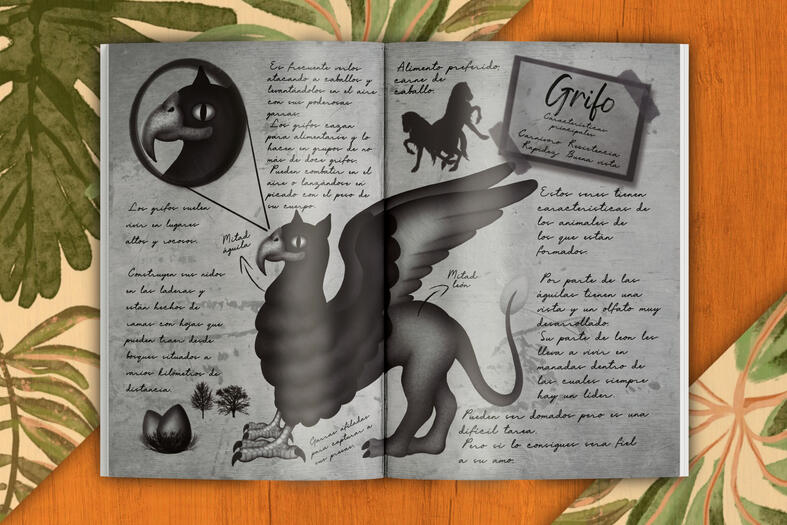 Es frecuente verlos
atacando a caballos y
levantándolos en el aire
con sus poderosas
garras.
Los grifos cazan
para alimentarse y lo
hacen en grupos de no
más de doce grifos.
Pueden combatir en el
aire o lanzándose en
picado con el peso de
su cuerpo.
Los grifos suelen
vivir en lugares
altos y rocosos.
Mitad
águila
Construyen sus nidos
en las laderas y
están hechos de
ramas con hojas que
pueden traer desde
bosques situados a
varios kilómetros de
distancia.
Garras afiladas
para capturar a
sus presas.
Alimento preferido:
carne de
caballo.
Grifo
Características
principales:
Carnívoro Resistencia
Rapidez Buena vista
Estos seres tienen
características de
los animales de
los que están
formados.
Mitad
león
Por parte de las
águilas tienen una
vista y un olfato muy
desarrollado.
Su parte de leon les
lleva a vivir en
manadas dentro de
las cuales siempre
hay un líder.
Pueden ser domados pero es una
difícil tarea.
Pero si lo consigues sera fiel
a su amo.